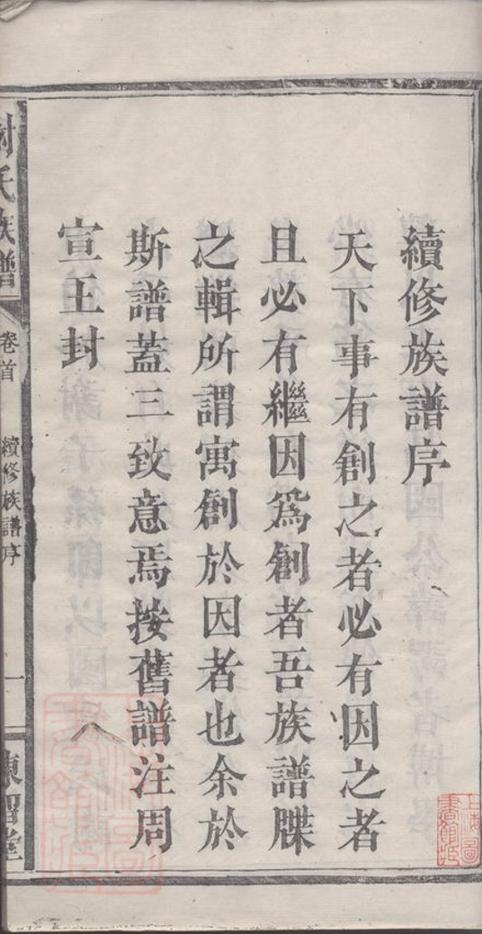 續修族譜序
天下事有創之者必有因之者
且必有繼因爲創者吾族譜牒
之輯所謂寓創於因者也余於
斯譜蓋三致意焉按舊譜注周
宣王封
謝氏族譜
卷首
續修族譜序
一